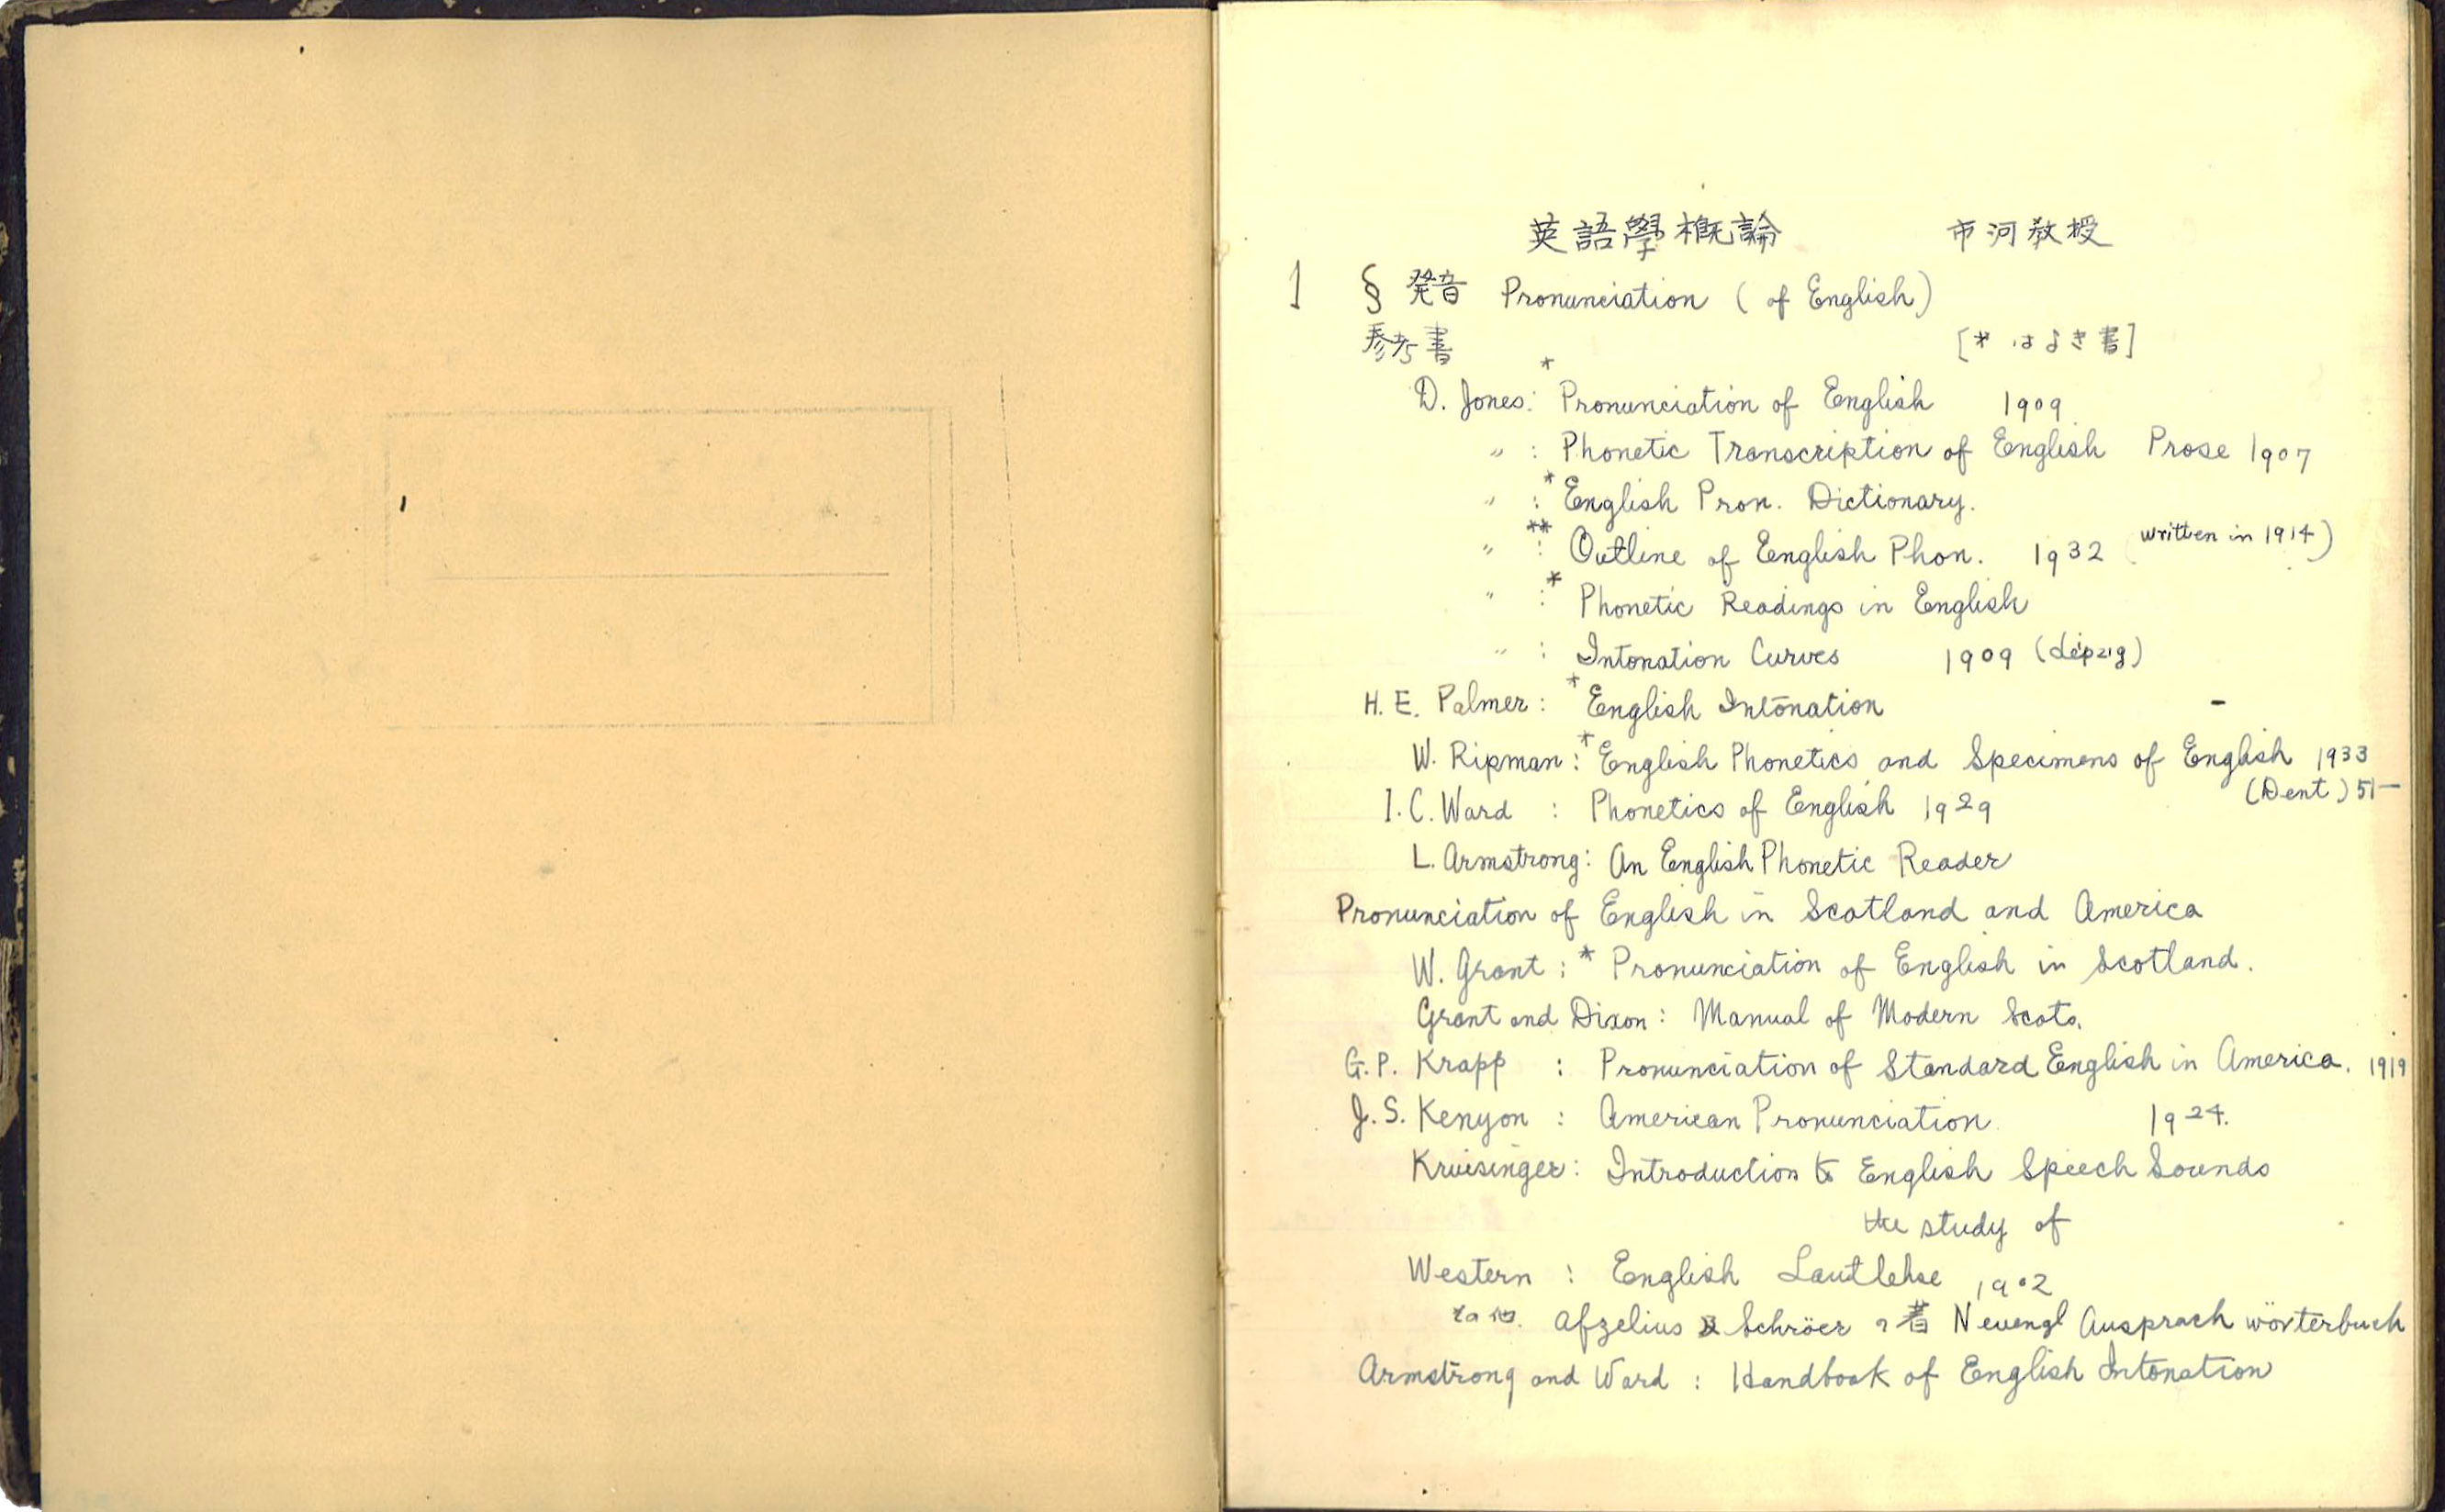 英語學概論 市河教授
1 § 発音 Pronunciation (of English)
参考書 [* はよき書]
D. Jones: * Pronunciation of English 1909
〃 : Phonetic Transcription of English Prose 1907
〃 : * English Pron. Dictionary.
〃 : ** Outline of English Phon. 1932 (written in 1914)
〃 : * Phonetic Readings in English
〃 : Intonation Curves 1909 (Leipzig)
H. E. Palmer: * English Intonation
W. Ripman: * English Phonetics and Specimens of English 1933
(Dent) 5/-
I. C. Ward : Phonetics of English 1929
L. Armstrong: An English Phonetic Reader
Pronunciation of English in Scotland and America
W. Grant : * Pronunciation of English in Scotland.
Grant and Dixon: Manual of Modern Scots.
G. P. Krapp : Pronunciation of Standard English in America. 1919
J. S. Kenyon : American Pronunciation 1924.
Kruisinger: Introduction to English Speech Sounds
the study of
Western : English Lautlehre 1902
その他. Afzelius 及 Schröer ノ著 Neuengl Ausprach wörterbuch
Armstrong and Ward : Handbook of English Intonation